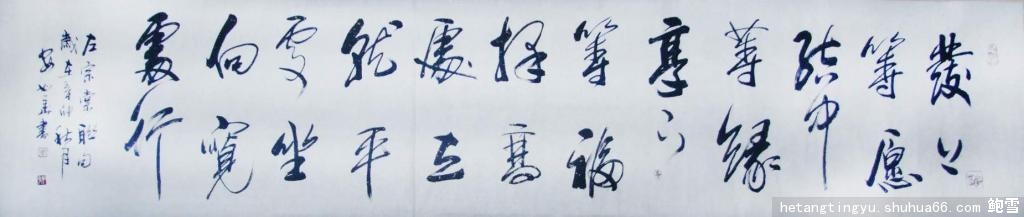 發上
等愿
结中
等缘
享下
等福
择高
處立
就平
處坐
向宽
處行
左宗棠联句
歲在辛卯秋月
书
hetangtingyu.shuhua66.com 鲍雪